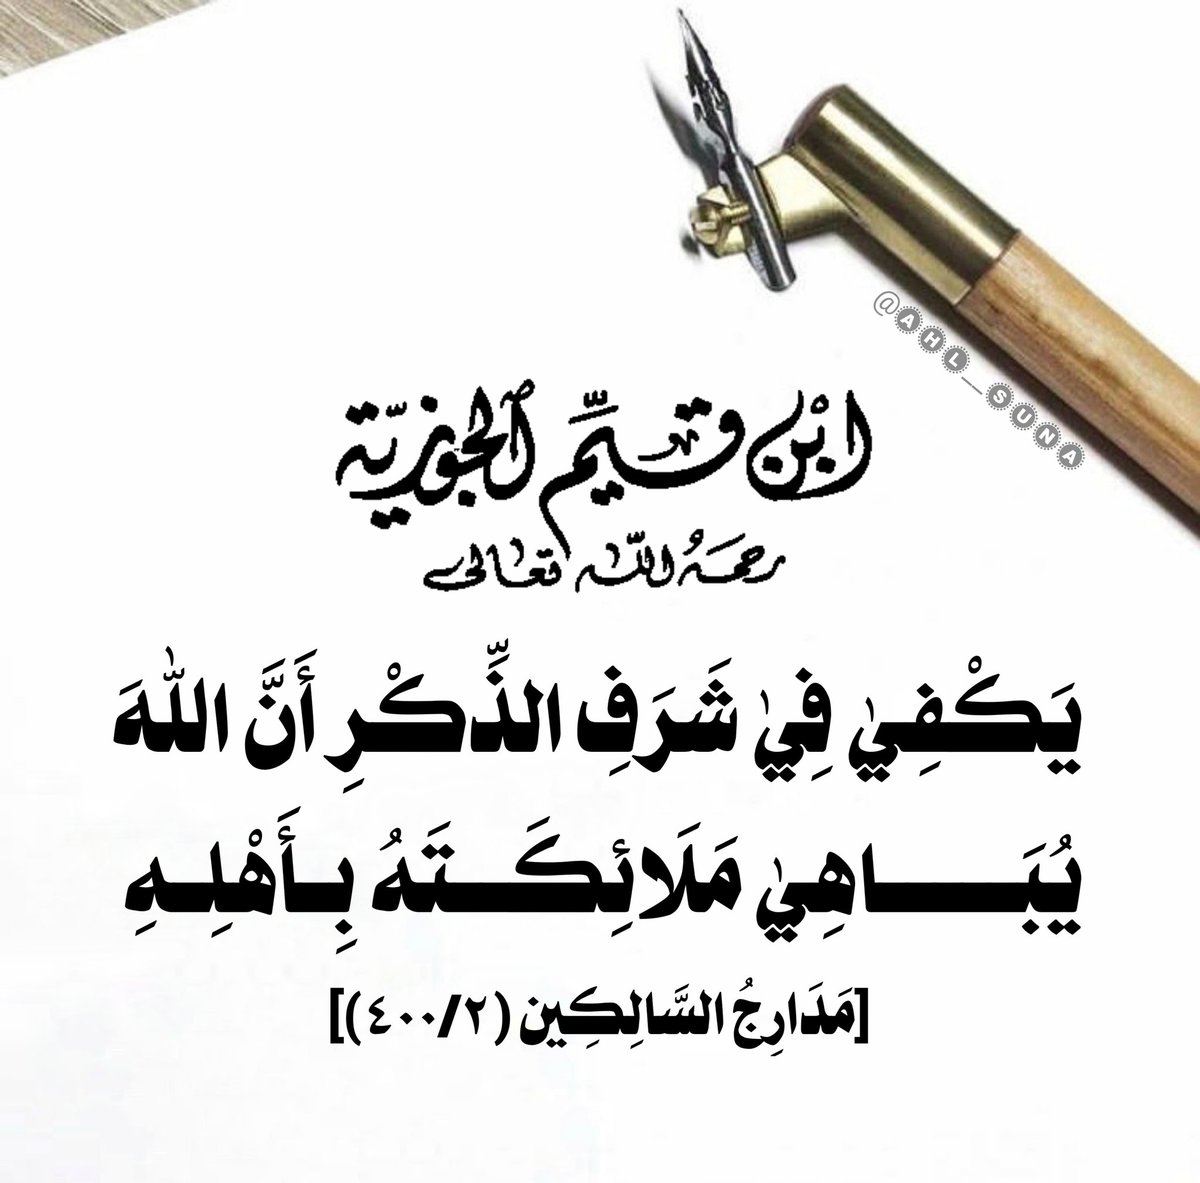 @AHL_SUNA
ابْن قَيِّم الجوزيّة
رحمَهُ اللّٰه تعالى
يَكْفِيْ فِيْ شَرَفِ الذِّكْرِ أَنَّ اللّٰهَ
يُبَـــــاهِيْ مَلَائِكَـــتَهُ بِـأَهْلِـهِ
[مَدَارِجُ السَّالِكِين (٤٠٠/٢)]